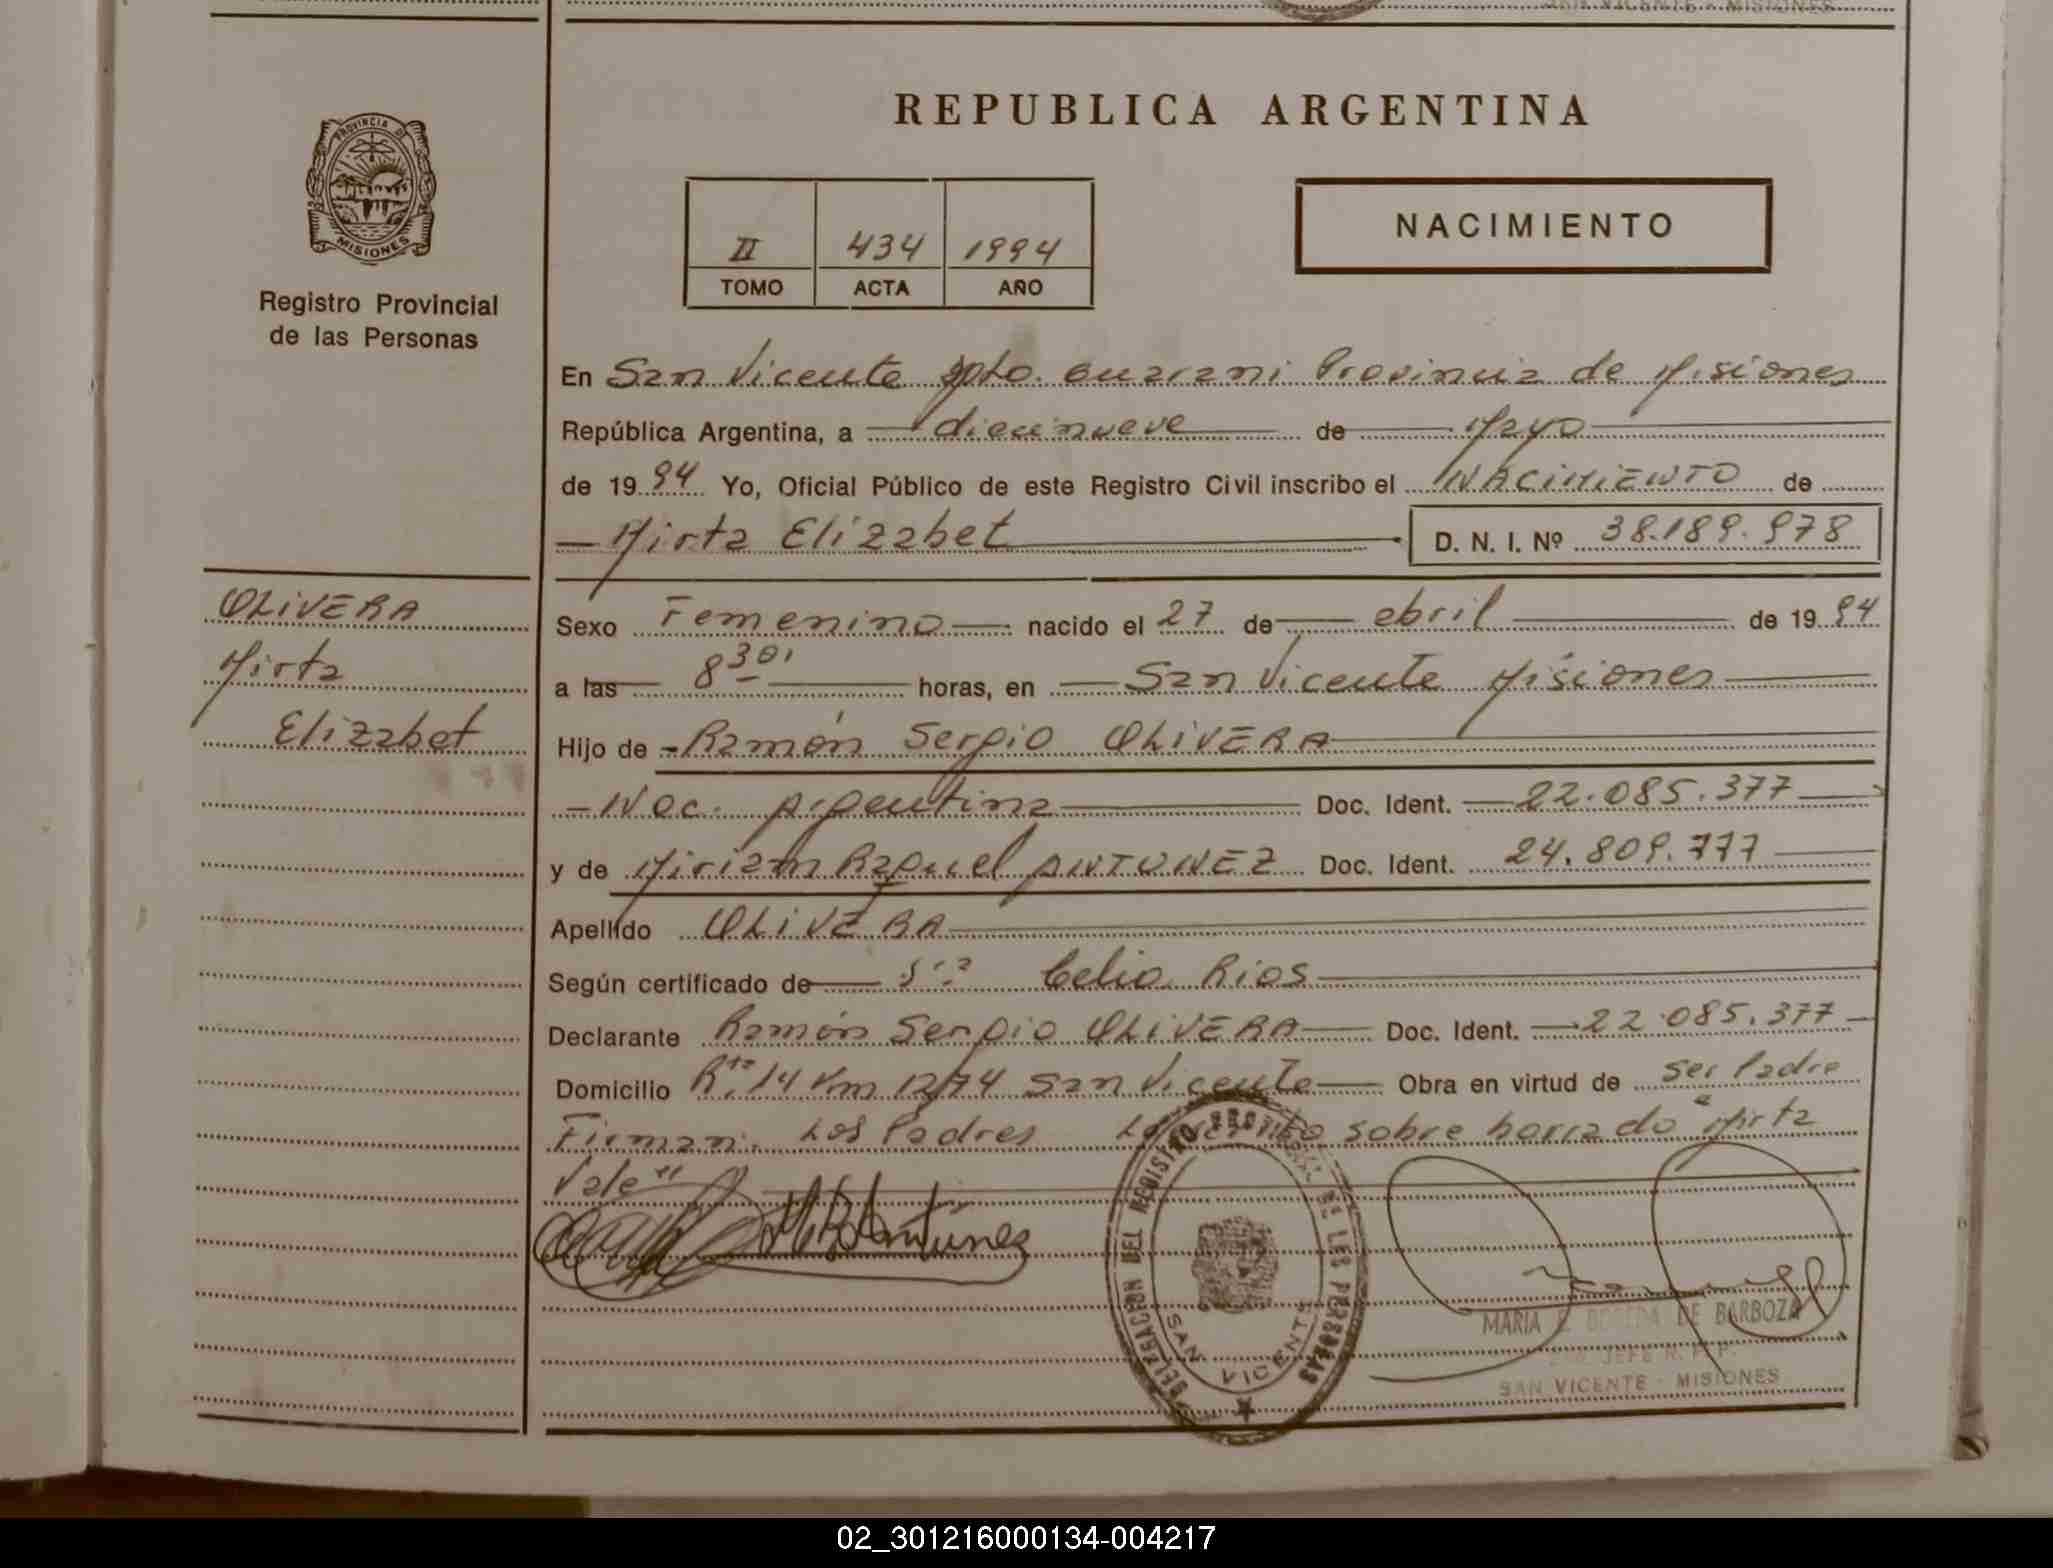 SAN VICENTE - MISIONES
REPUBLICA ARGENTINA
PROVINCIA DE
MISIONES
Registro Provincial
de las Personas
II 434 1994
TOMO ACTA AÑO
NACIMIENTO
En San Vicente Dpto. Guarani Provincia de Misiones
República Argentina, a diecinueve de Mayo
de 1994 Yo, Oficial Público de este Registro Civil inscribo el NACIMIENTO de
Mirta Elizabet D. N. I. Nº 38.189.978
OLIVERA
Mirta
Elizabet
Sexo Femenino nacido el 27 de ebril de 1994
a las 8 30' horas, en San Vicente Misiones
Hijo de Ramón Sergio OLIVERA
Nac. Argentina Doc. Ident. 22.085.377
y de Miriam Raquel ANTUNEZ Doc. Ident. 24.809.777
Apellido OLIVERA
Según certificado de Celia Rios
Declarante Ramón Sergio OLIVERA Doc. Ident. 22.085.377
Domicilio Rta. 14 Km 1274 San Vicente Obra en virtud de ser Padre
Firman: Los Padres sobre borrado "Mirta
Vale"
M R Antúnez
DELEGACION DEL REGISTRO DE LAS PERSONAS
SAN VICENTE
MARIA DE BARBOZA
JEFE R. P. P.
SAN VICENTE - MISIONES
02_301216000134-004217